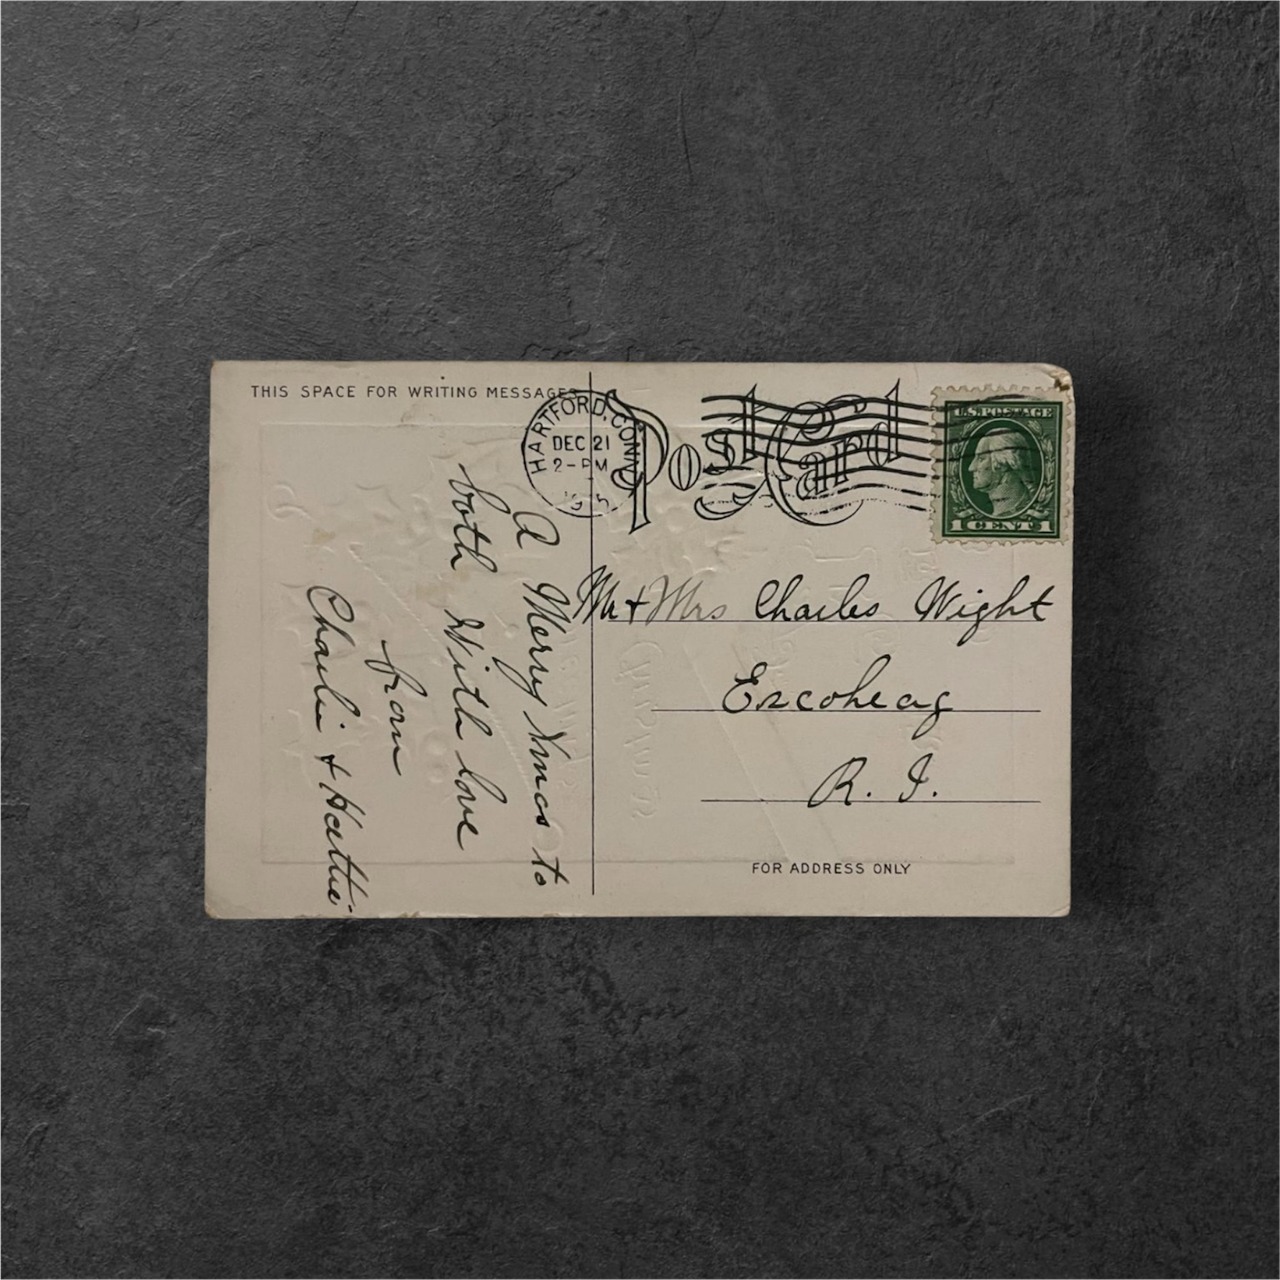 THIS SPACE FOR WRITING MESSAGES
Post Card
HARTFORD, CONN.
DEC 21
2-PM
U.S. POSTAGE
1 CENT 1
A Merry Xmas to
both With love
from
Charlie & Hattie
Mr & Mrs Charles Wight
Escoheag
R. I.
FOR ADDRESS ONLY